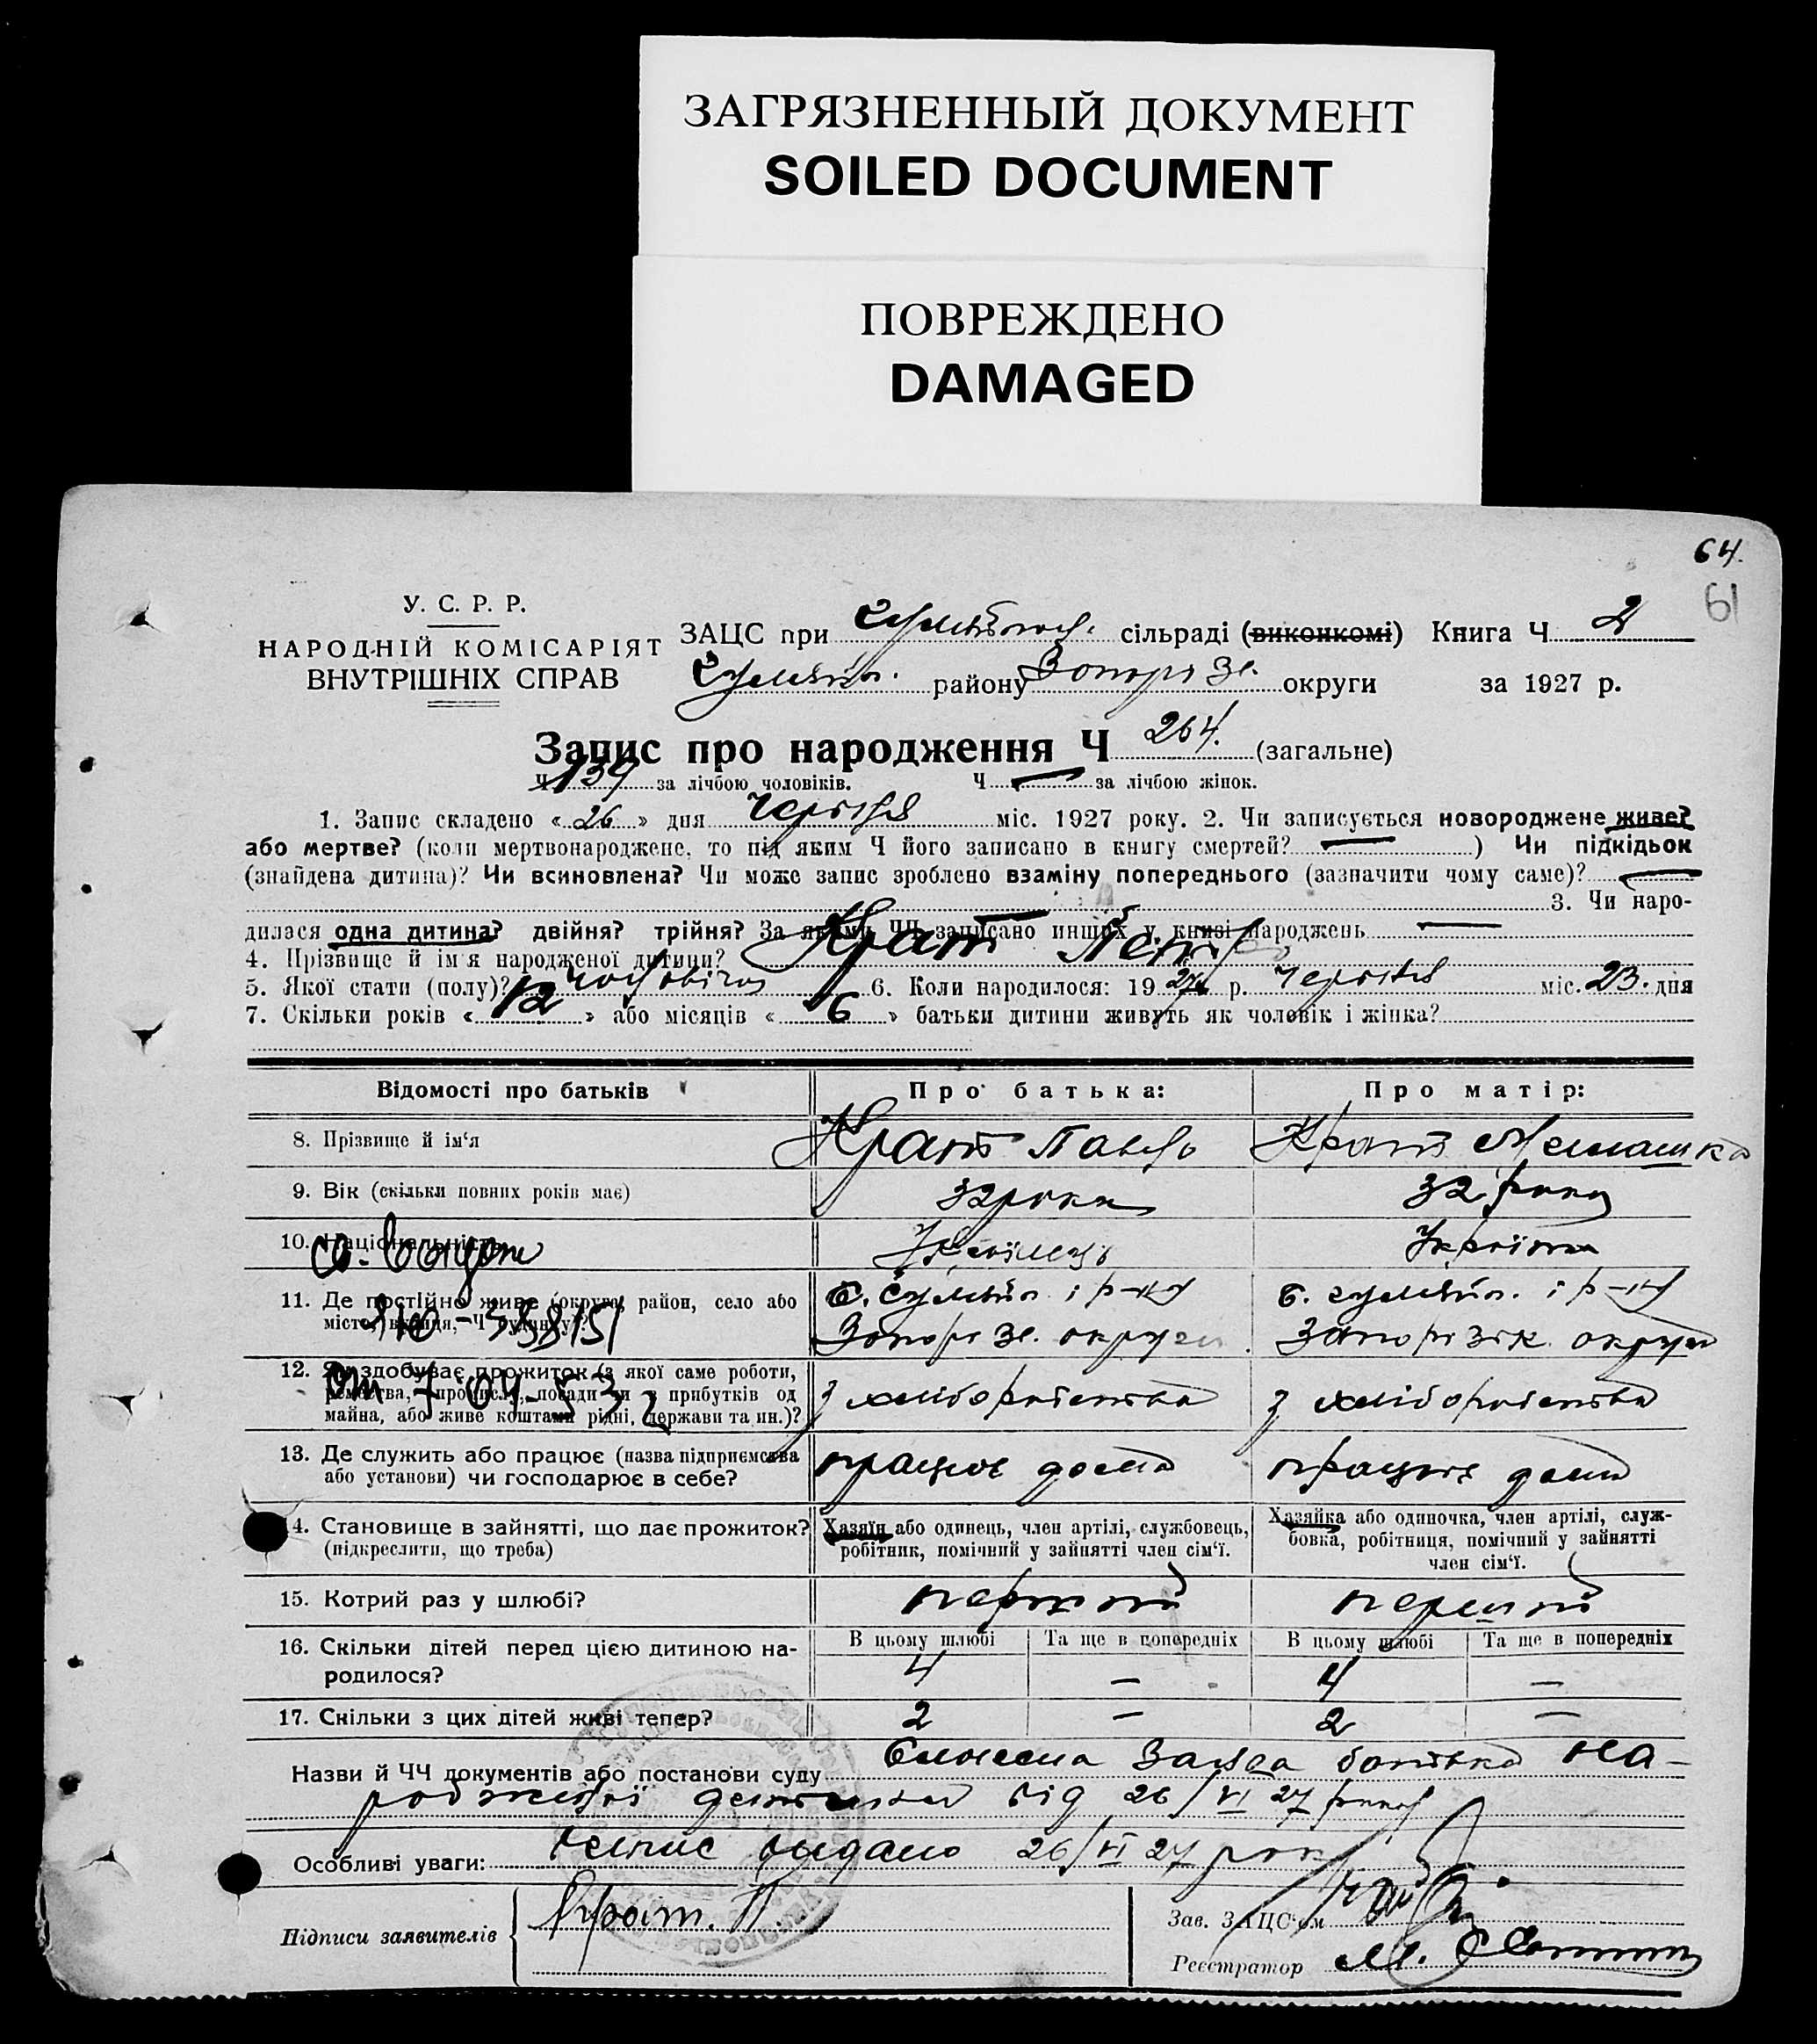 ЗАГРЯЗНЕННЫЙ ДОКУМЕНТ
SOILED DOCUMENT
ПОВРЕЖДЕНО
DAMAGED
64.
61
У. С. Р. Р.
НАРОДНІЙ КОМІСАРІЯТ
ВНУТРІШНІХ СПРАВ
ЗАЦС при сільраді (виконкомі) Книга Ч 2
району Запоріз. округи за 1927 р.
Запис про народження Ч 264. (загальне)
Ч 139 за лічбою чоловіків. Ч — за лічбою жінок.
1. Запис складено « 26 » дня Червня міс. 1927 року. 2. Чи записується новороджене живе?
або мертве? (коли мертвонароджене, то під яким Ч його записано в книгу смертей? — ) Чи підкідьок
(знайдена дитина)? Чи всиновлена? Чи може запис зроблено взаміну попереднього (зазначити чому саме)? —
— 3. Чи наро-
дилася одна дитина? двійня? трійня? За якими ЧЧ записано инших у книзі народжень —
4. Прізвище й ім'я народженої дитини? Крат Петро
5. Якої стати (полу)? чоловіча 6. Коли народилося: 19 27 р. Червня міс. 23. дня
7. Скільки років « 12 » або місяців « 6 » батьки дитини живуть як чоловік і жінка?
Відомості про батьків Про батька: Про матір:
8. Прізвище й ім'я Крат Павло Крат
9. Вік (скільки повних років має) 32 роки 32 роки
10. Національність Українець Українка
11. Де постійно живе (округа, район, село або
місто, вулиця, Ч будинку)?
і р-ну і р-ну
Запоріз. округи Запорізк. округи
12. Як здобуває прожиток (з якої саме роботи,
ремества, промислу, посади чи з прибутків од
майна, або живе коштами рідні, держави та ин.)?
з хліборобства з хліборобства
13. Де служить або працює (назва підприємства
або установи) чи господарює в себе?
працює дома працює дома
14. Становище в зайнятті, що дає прожиток?
(підкреслити, що треба)
Хазяїн або одинець, член артілі, службовець,
робітник, помічний у зайнятті член сім'ї.
Хазяйка або одиночка, член артілі, служ-
бовка, робітниця, помічний у зайнятті
член сім'ї.
15. Котрий раз у шлюбі? перший перший
16. Скільки дітей перед цією дитиною на-
родилося?
В цьому шлюбі Та ще в попередніх В цьому шлюбі Та ще в попередніх
4 — 4 —
17. Скільки з цих дітей живі тепер? 2 — 2 —
Назви й ЧЧ документів або постанови суду заява батька на-
родженої дитини від 26/VI 27 року
Особливі уваги: видано 26/VI 27 року
Підписи заявителів Крат. П.
Зав. ЗАЦС'ом
Реєстратор